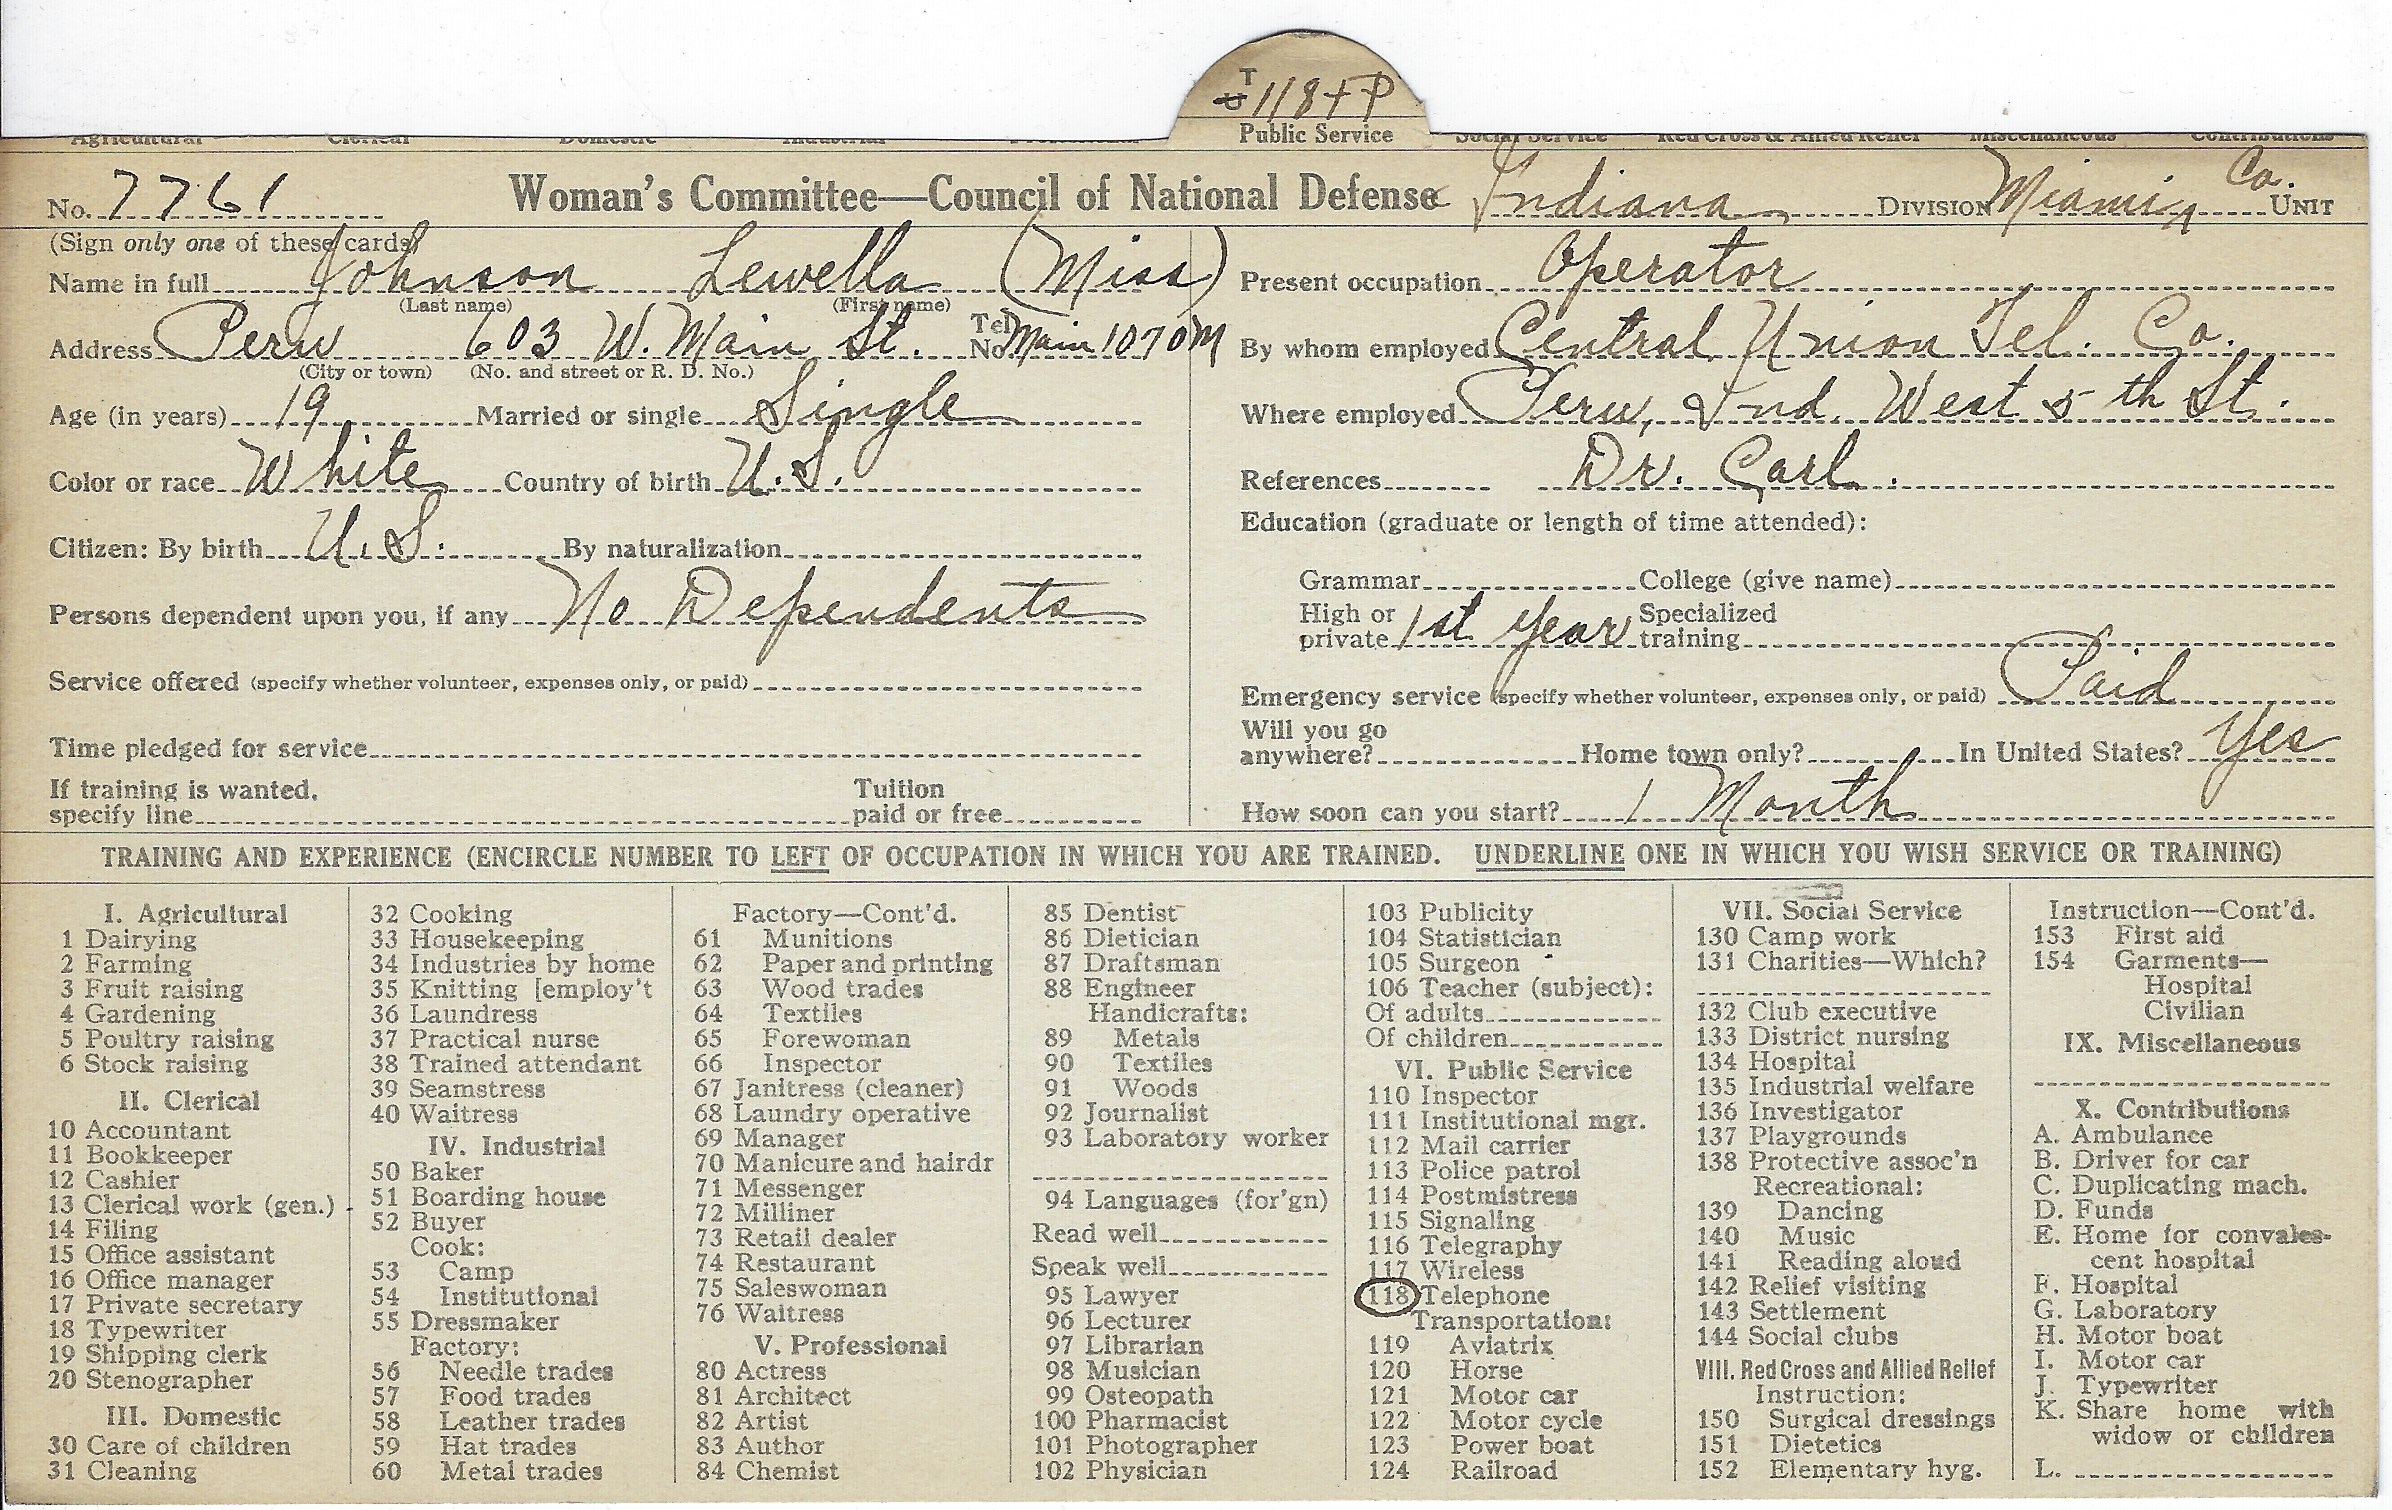 T
U 118 + P
Agricultural Clerical Domestic Industrial Public Service Social Service Red Cross & Allied Relief Miscellaneous Contributions
No. 7761 Woman's Committee—Council of National Defense Indiana DIVISION Miami Co. UNIT
(Sign only one of these cards)
Name in full Johnson Lewella (Miss)
(Last name) (First name)
Address Peru 603 W. Main St. Tel. No. Main 1070M
(City or town) (No. and street or R. D. No.)
Age (in years) 19 Married or single Single
Color or race White Country of birth U.S.
Citizen: By birth U.S. By naturalization
Persons dependent upon you, if any No Dependents
Service offered (specify whether volunteer, expenses only, or paid)
Time pledged for service
If training is wanted, Tuition
specify line paid or free
Present occupation Operator
By whom employed Central Union Tel. Co.
Where employed Peru, Ind. West 5th St.
References Dr. Carl.
Education (graduate or length of time attended):
Grammar College (give name)
High or Specialized
private 1st Year training
Emergency service (specify whether volunteer, expenses only, or paid) Paid
Will you go
anywhere? Home town only? In United States? Yes
How soon can you start? 1 Month
TRAINING AND EXPERIENCE (ENCIRCLE NUMBER TO LEFT OF OCCUPATION IN WHICH YOU ARE TRAINED. UNDERLINE ONE IN WHICH YOU WISH SERVICE OR TRAINING)
I. Agricultural
1 Dairying
2 Farming
3 Fruit raising
4 Gardening
5 Poultry raising
6 Stock raising
II. Clerical
10 Accountant
11 Bookkeeper
12 Cashier
13 Clerical work (gen.)
14 Filing
15 Office assistant
16 Office manager
17 Private secretary
18 Typewriter
19 Shipping clerk
20 Stenographer
III. Domestic
30 Care of children
31 Cleaning
32 Cooking
33 Housekeeping
34 Industries by home
35 Knitting [employ't
36 Laundress
37 Practical nurse
38 Trained attendant
39 Seamstress
40 Waitress
IV. Industrial
50 Baker
51 Boarding house
52 Buyer
Cook:
53 Camp
54 Institutional
55 Dressmaker
Factory:
56 Needle trades
57 Food trades
58 Leather trades
59 Hat trades
60 Metal trades
Factory—Cont'd.
61 Munitions
62 Paper and printing
63 Wood trades
64 Textiles
65 Forewoman
66 Inspector
67 Janitress (cleaner)
68 Laundry operative
69 Manager
70 Manicure and hairdr
71 Messenger
72 Milliner
73 Retail dealer
74 Restaurant
75 Saleswoman
76 Waitress
V. Professional
80 Actress
81 Architect
82 Artist
83 Author
84 Chemist
85 Dentist
86 Dietician
87 Draftsman
88 Engineer
Handicrafts:
89 Metals
90 Textiles
91 Woods
92 Journalist
93 Laboratory worker
94 Languages (for'gn)
Read well
Speak well
95 Lawyer
96 Lecturer
97 Librarian
98 Musician
99 Osteopath
100 Pharmacist
101 Photographer
102 Physician
103 Publicity
104 Statistician
105 Surgeon
106 Teacher (subject):
Of adults
Of children
VI. Public Service
110 Inspector
111 Institutional mgr.
112 Mail carrier
113 Police patrol
114 Postmistress
115 Signaling
116 Telegraphy
117 Wireless
118 Telephone
Transportation:
119 Aviatrix
120 Horse
121 Motor car
122 Motor cycle
123 Power boat
124 Railroad
VII. Social Service
130 Camp work
131 Charities—Which?
132 Club executive
133 District nursing
134 Hospital
135 Industrial welfare
136 Investigator
137 Playgrounds
138 Protective assoc'n
Recreational:
139 Dancing
140 Music
141 Reading aloud
142 Relief visiting
143 Settlement
144 Social clubs
VIII. Red Cross and Allied Relief
Instruction:
150 Surgical dressings
151 Dietetics
152 Elementary hyg.
Instruction—Cont'd.
153 First aid
154 Garments—
Hospital
Civilian
IX. Miscellaneous
X. Contributions
A. Ambulance
B. Driver for car
C. Duplicating mach.
D. Funds
E. Home for convales-
cent hospital
F. Hospital
G. Laboratory
H. Motor boat
I. Motor car
J. Typewriter
K. Share home with
widow or children
L.